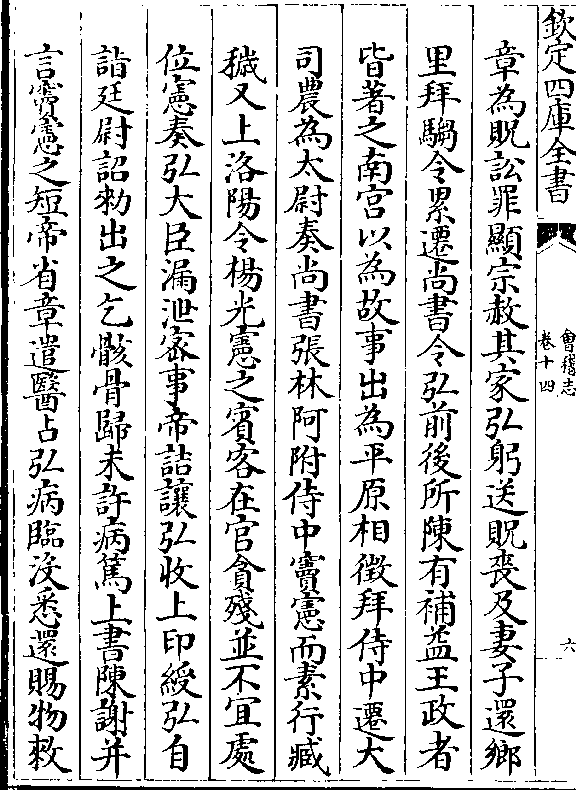 欽定四庫全書
會稽志
卷十四
六
章為貺訟罪顯宗赦其家弘躬送貺喪及妻子還鄉
里拜騶令累遷尚書令弘前後所陳有補益王政者
皆著之南宮以為故事出為平原相徵拜侍中遷大
司農為太尉奏尚書張林阿附侍中竇憲而素行臧
穢又上洛陽令楊光憲之賓客在官貪殘並不宜處
位憲奏弘大臣漏泄宻事帝詰讓弘收上印綬弘自
詣廷尉詔勑出之乞骸骨歸未許病篤上書陳謝并
言竇憲之短帝省章遣醫占弘病臨沒悉還賜物敕